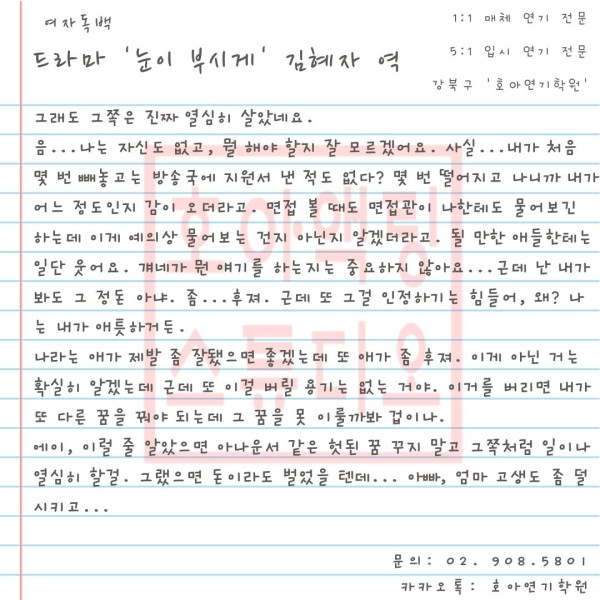 여자독백
1:1 매체 연기 전문
드라마 '눈이 부시게' 김혜자 역
5:1 입시 연기 전문
강북구 '호아연기학원'
그래도 그쪽은 진짜 열심히 살았네요.
음...나는 자신도 없고, 뭘 해야 할지 잘 모르겠어요. 사실...내가 처음
몇 번 빼놓고는 방송국에 지원서 낸 적도 없다? 몇 번 떨어지고 나니까 내가
어느 정도인지 감이 오더라고. 면접 볼 때도 면접관이 나한테도 물어보긴
하는데 이게 예의상 물어보는 건지 아닌지 알겠더라고. 될 만한 애들한테는
일단 웃어요. 걔네가 뭔 얘기를 하는지는 중요하지 않아요...근데 난 내가
봐도 그 정돈 아냐. 좀...후져. 근데 또 그걸 인정하기는 힘들어, 왜? 나
는 내가 애틋하거든.
나라는 애가 제발 좀 잘됐으면 좋겠는데 또 애가 좀 후져. 이게 아닌 거는
확실히 알겠는데 근데 또 이걸 버릴 용기는 없는 거야. 이거를 버리면 내가
또 다른 꿈을 꿔야 되는데 그 꿈을 못 이룰까봐 겁이나.
에이, 이럴 줄 알았으면 아나운서 같은 헛된 꿈 꾸지 말고 그쪽처럼 일이나
열심히 할걸. 그랬으면 돈이라도 벌었을 텐데... 아빠, 엄마 고생도 좀 덜
시키고...
호아액팅
스튜디오
문의: 02. 908.5801
카카오톡: 호아연기학원